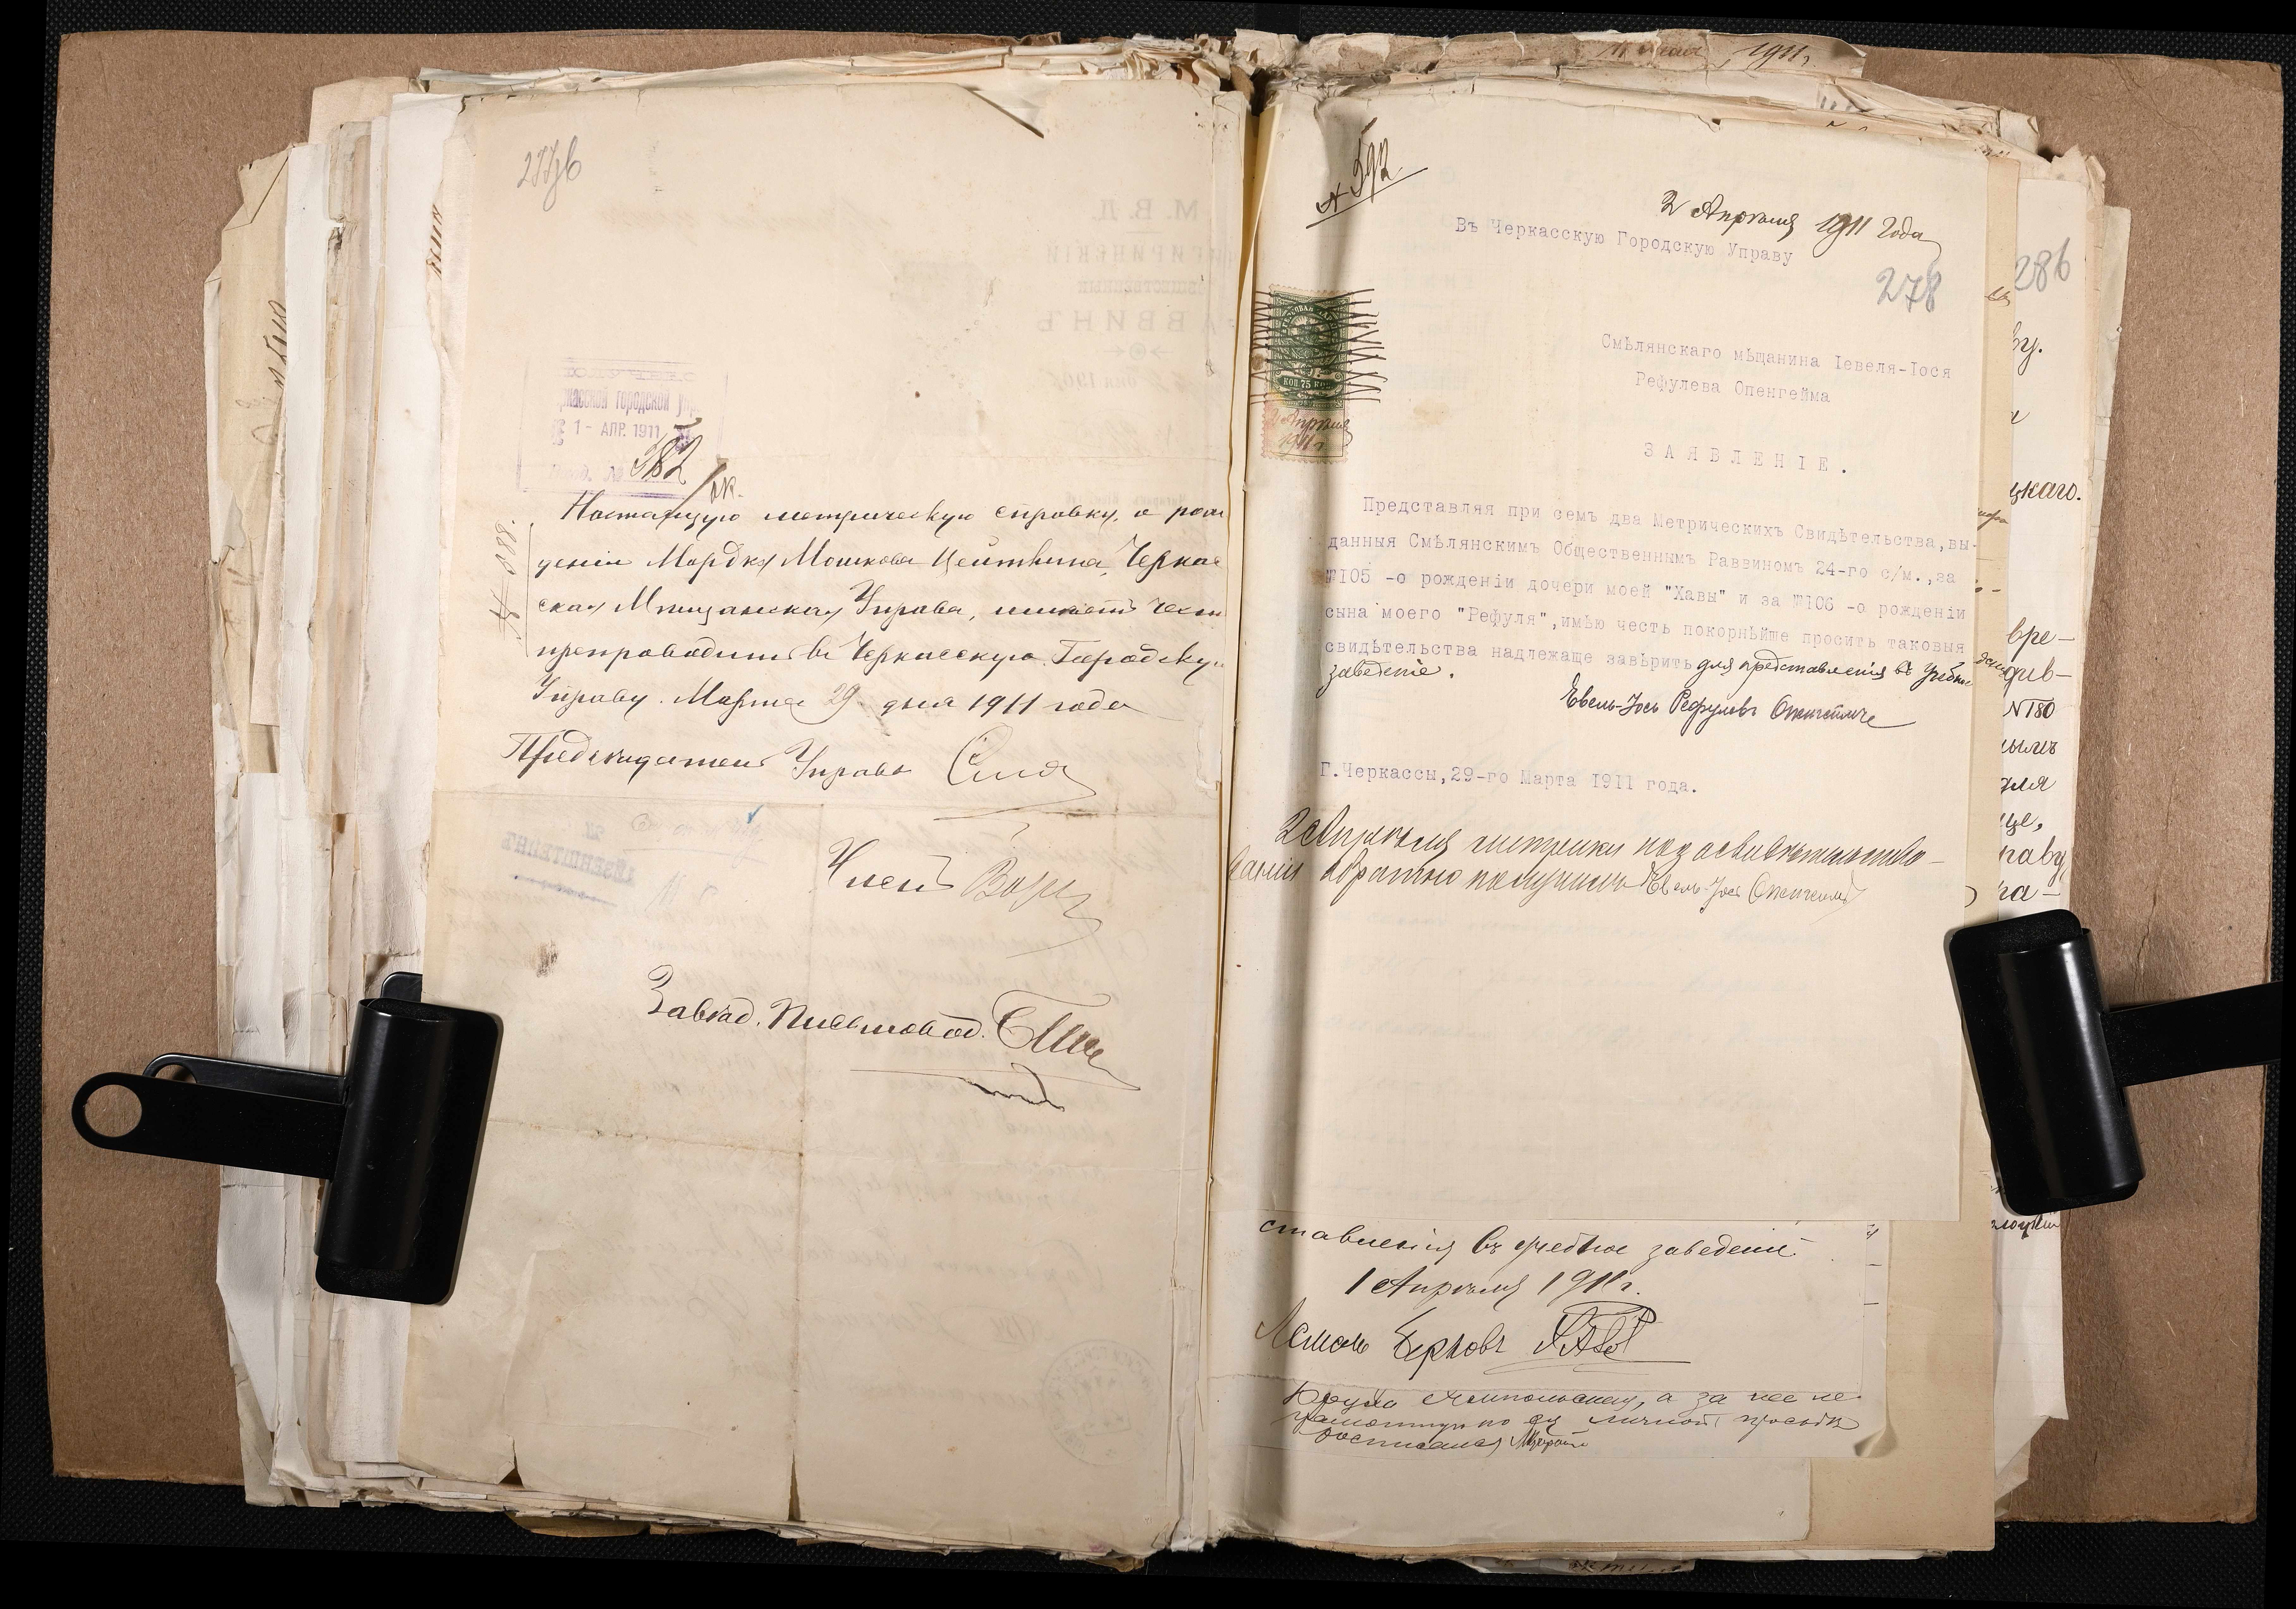 277об
1 - АПР. 1911
382
№ 888.
Настоящую метрическую справку, о рож
деніи Мордка Мошкова Цейтлина, Черкас
ская Мѣщанская Управа, имѣетъ честь
препроводить въ Черкасскую Городскую
Управу. Марта 29 дня 1911 года
Предсѣдатель Управы
Членъ
Завѣд. Письмовод.
№ 592
2 Апрѣля 1911 года
Въ Черкасскую Городскую Управу
278
Смѣлянскаго мѣщанина Іевеля-Іося
Рефулева Опенгейма
ЗАЯВЛЕНІЕ.
Представляя при семъ два Метрическихъ Свидѣтельства, вы-
данныя Смѣлянскимъ Общественнымъ Раввиномъ 24-го с/м., за
№105 -о рожденіи дочери моей "Хавы" и за №106 -о рожденіи
сына моего "Рефуля", имѣю честь покорнѣйше просить таковыя
свидѣтельства надлежаще завѣрить для представленія въ учебное
заведеніе.
Евель-Іось Рефулевъ Опенгеймъ
Г.Черкассы, 29-го Марта 1911 года.
КОП 75 КОП
2 Апрѣля
1911 г.
2 Апрѣля метрики по засвидѣтельство-
ваніи обратно получилъ Евель-Іось Опенгеймъ
ставленія въ учебное заведеніе
1 Апрѣля 1911 г.
а за нее не
грамотную по ея личной просьбѣ
росписался
286
ву.
цкаго.
вре-
N180
для
ще,
раву